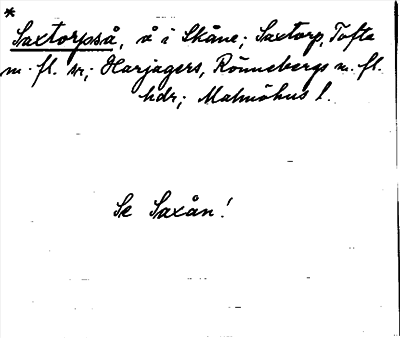 *
Saxtorpså, å i Skåne; Saxtorp, Tofta
m. fl. sr; Harjagers, Rönnebergs m. fl.
hdr; Malmöhus l.
Se Saxån!